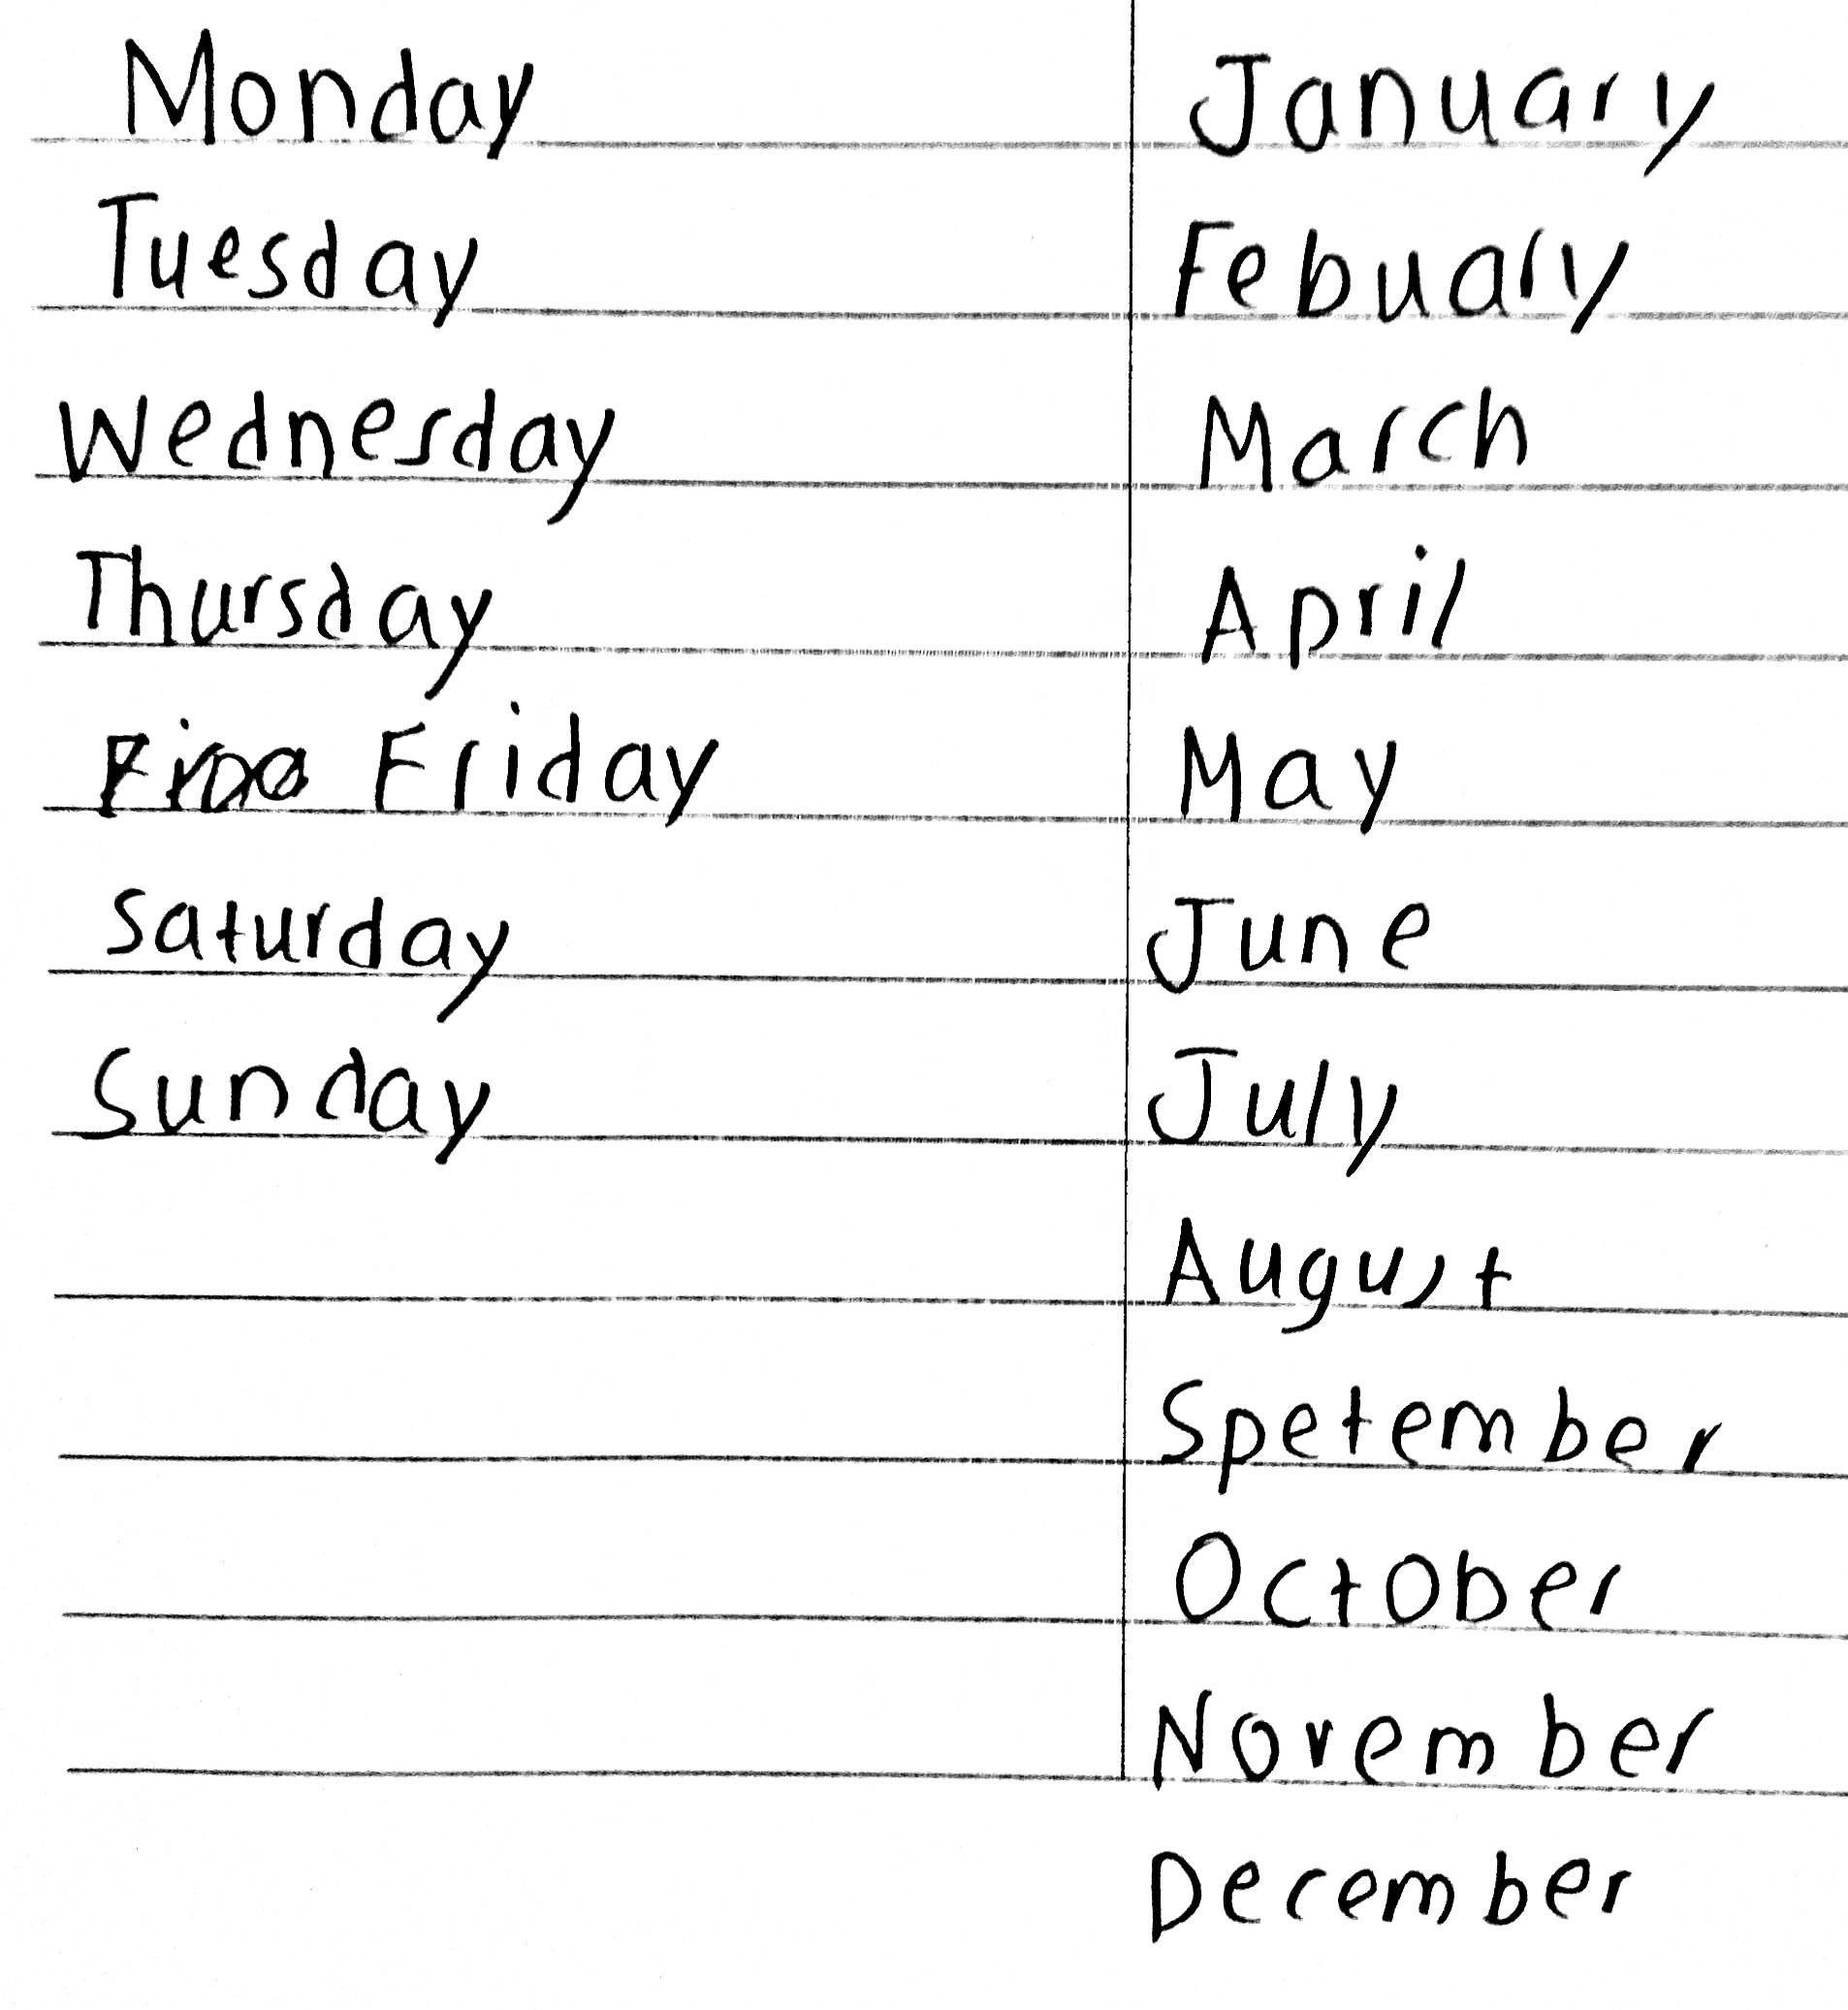 Monday
Tuesday
Wednesday
Thursday
Friday
Saturday
Sunday
January
Febuary
March
April
May
June
July
August
Spetember
October
November
December